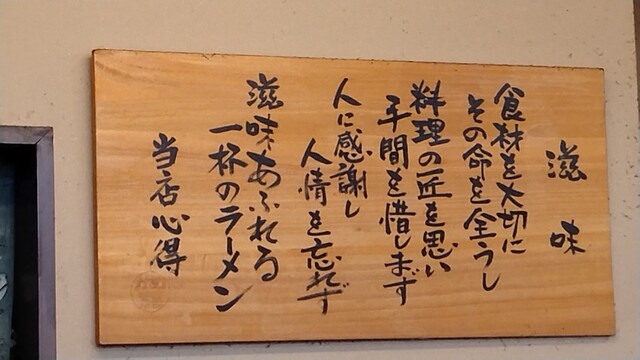 滋味
食材を大切に
その命を全うし
料理の匠を思い
手間を惜しまず
人に感謝し
人情を忘れず
滋味あふれる
一杯のラーメン
当店心得